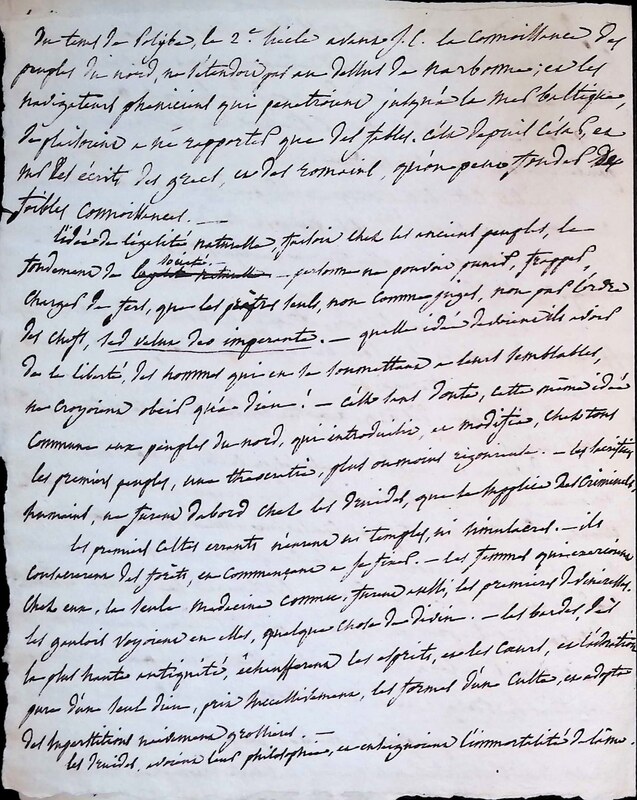 du tems de Polybe, le 2e siècle avant J.C. la connoissance des
peuples du nord, ne s'étendoit pas au dessus de narbonne; et les
navigateurs phéniciens qui penetroient jusqu'à la mer baltique,
de plaisoient a ne rapporter que des fables. c'est depuis césar, et
sur les écrits des grecs, et des romains, qu'on peut fonder de
foibles connoissances. —
l'idée de l'égalité naturelle faisoit chez les anciens peuples, le
fondement de la société. — personne ne pouvoit punir, frapper,
charger de fers, que les prêtres seuls, non comme juges, non par l'ordre
des chefs, sed velut deo imperante. — quelle idée devoient ils avoir
de la liberté, des hommes qui en se soumettant a leurs semblables,
ne croyoient obéir qu'a dieu! — c'est sans doute, cette même idée
commune aux peuples du nord, qui introduisit, et modifia, chez tous
les premiers peuples, une théocratie, plus ou moins rigoureuse. — les sacrifices
humains, ne furent d'abord chez les druides, que le supplice des criminels
les premiers celtes errants n'eurent ni temples, ni simulacres. — ils
consacrerent des forêts, en commençant a se fixer. — les femmes qui exercoient
chez eux, la seule médecine connue, furent aussi, les premieres devineresses.
les gaulois voyoient en elles, quelque chose de divin. — les bardes, dès
la plus haute antiquité, échaufferent les esprits, et les cœurs, et l'adoration
pure d'un seul dieu, prit insensiblement, les formes d'un culte, et adopta
des superstitions vraiement grossieres. —
les druides, avoient leur philosophie, et enseignoient l'immortalité de l'âme.